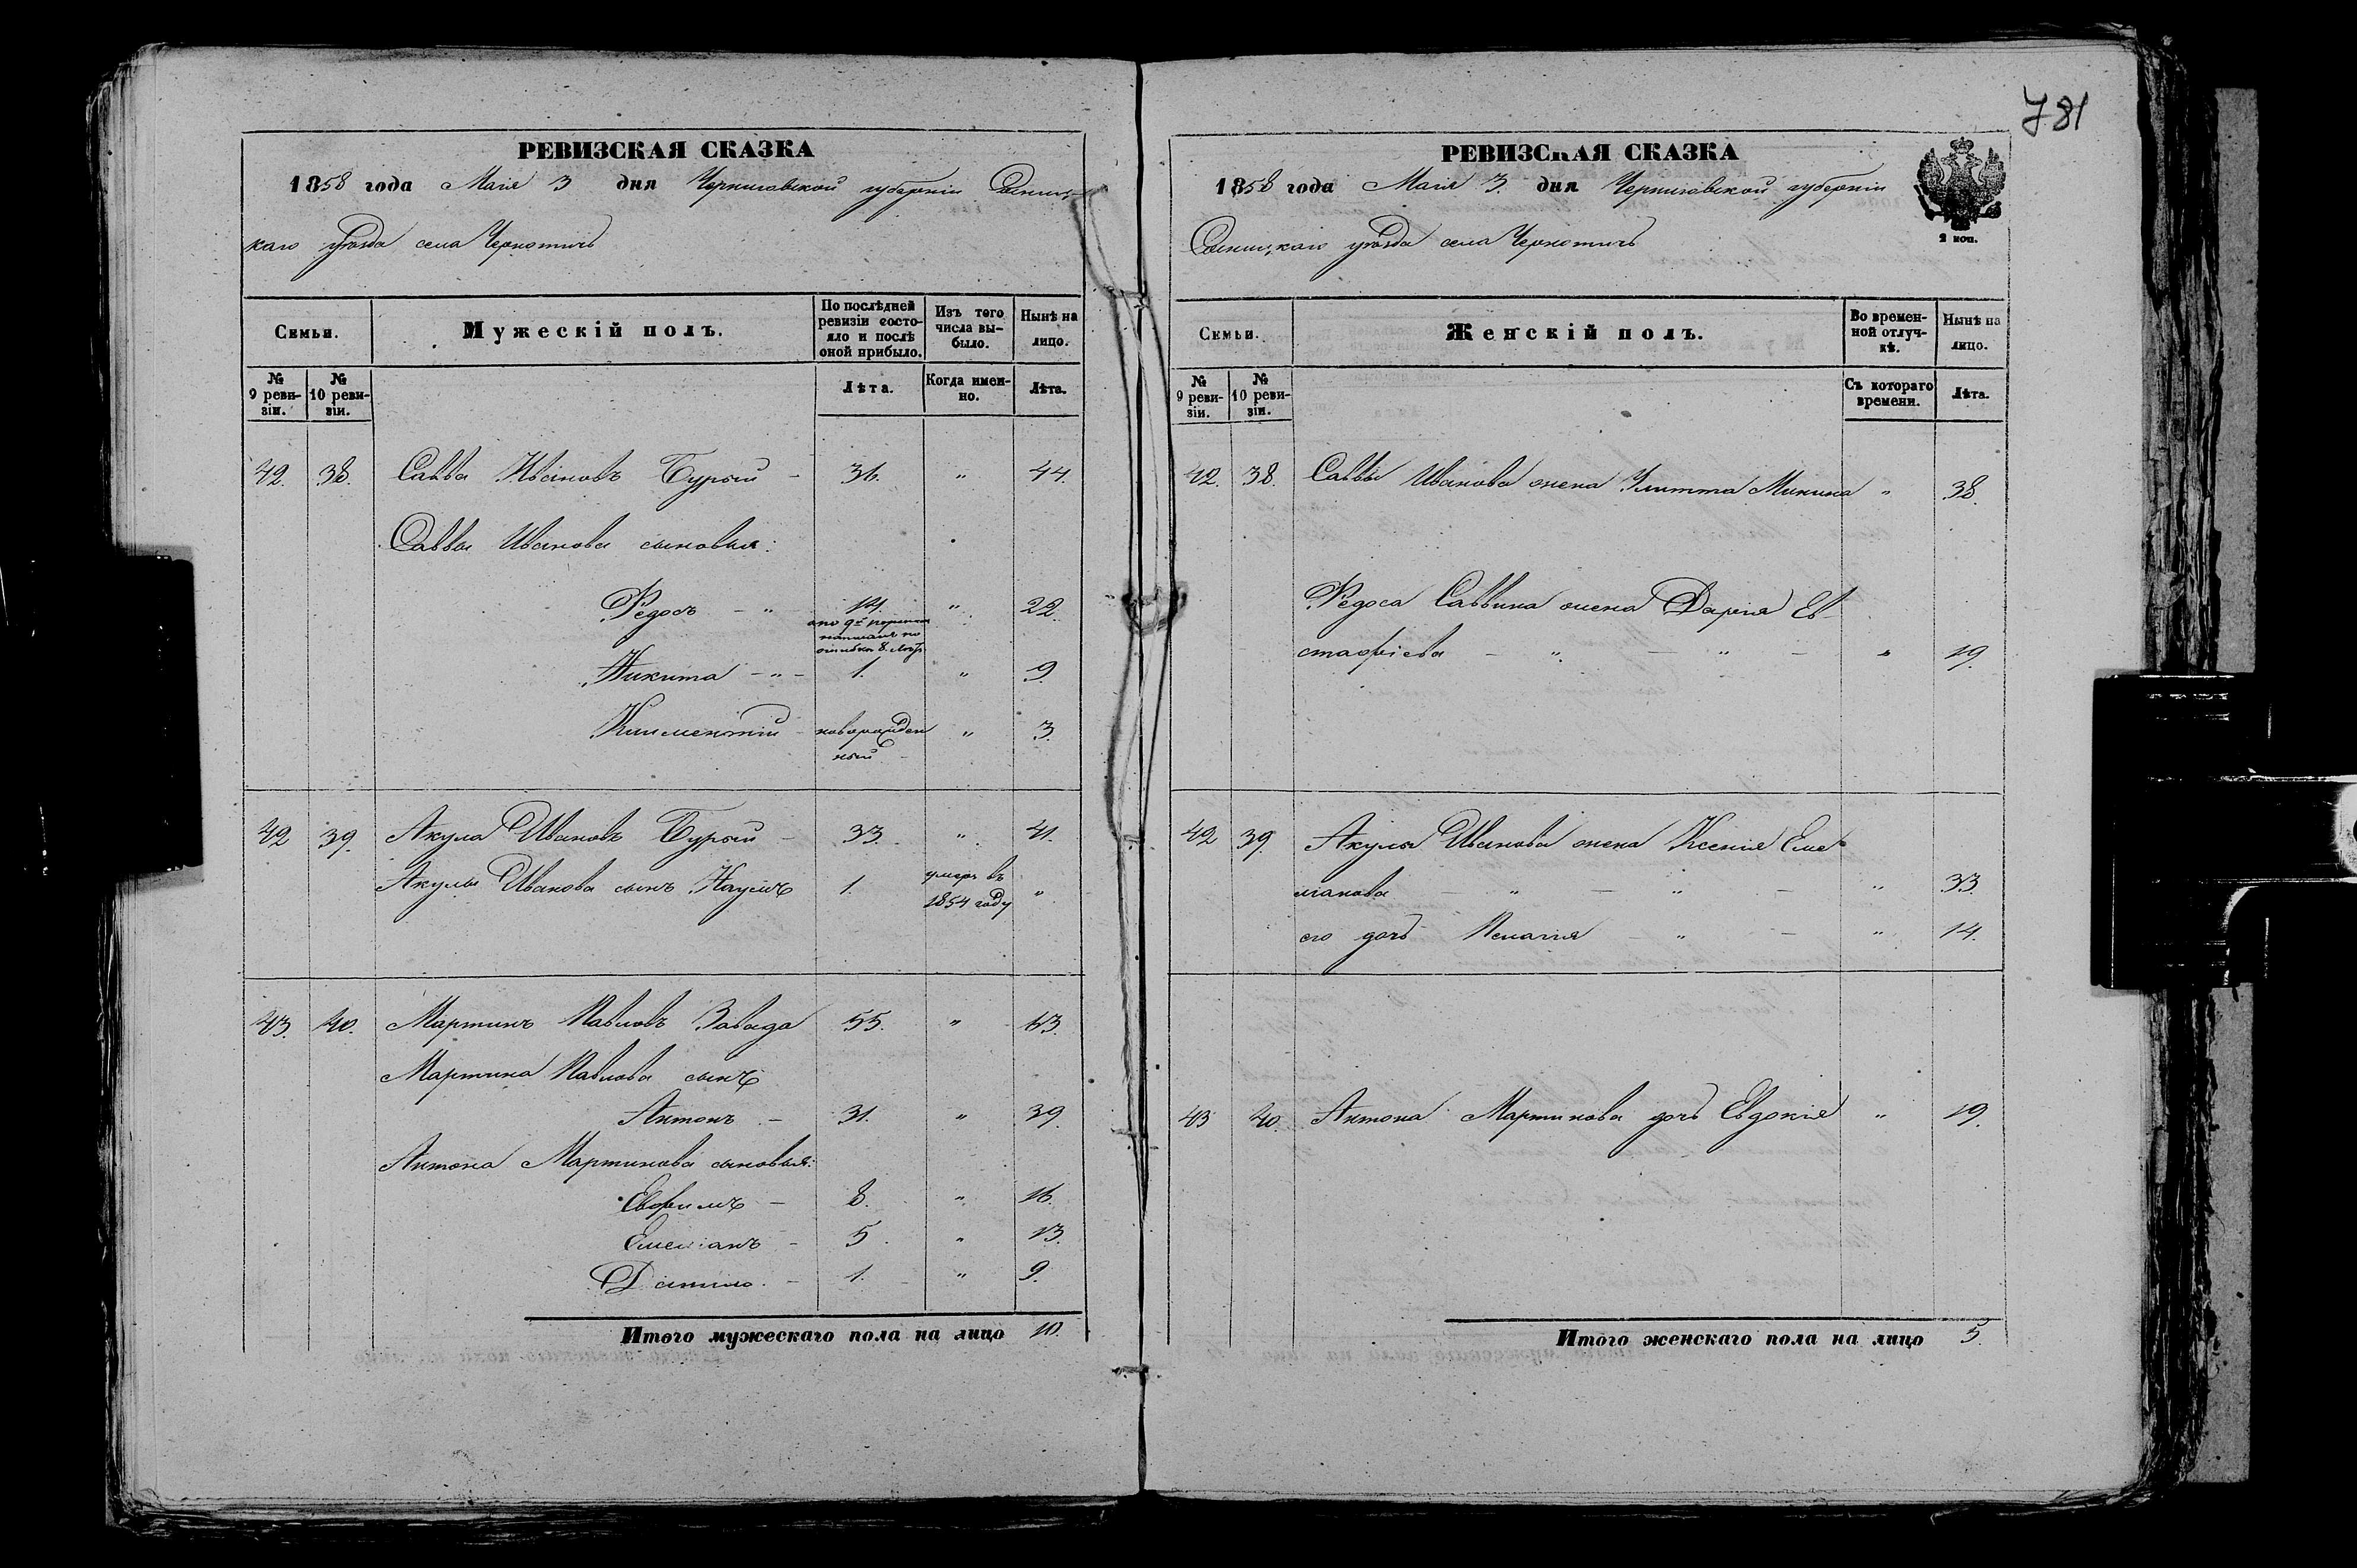 781
РЕВИЗСКАЯ СКАЗКА
1858 года Маія 3 дня Черниговской губерніи Сосниц-
каго уѣзда села Чернотичь
Семьи.
Мужескій полъ.
По послѣдней ревизіи состояло и послѣ оной прибыло.
Изъ того числа выбыло.
Нынѣ на лицо.
№ 9 ревизіи.
№ 10 ревизіи.
Лѣта.
Когда именно.
Лѣта.
42. 38. Савва Ивановъ Бурый - 36. " 44.
Саввы Иванова сыновья:
Федосъ - " 14. " 22.
ошибкою 8. лѣтъ
Никита - " - 1. " 9.
Климентій новорожден " 3.
ный
42 39. Акула Ивановъ Бурый - 33. " 41.
Акулы Иванова сынъ Наумъ 1. умеръ въ "
1854 году
43. 40. Мартинъ Павловъ Завада 55. " 63.
Мартина Павлова сынъ
Антонъ - 31. " 39.
Антона Мартинова сыновья:
Евфимъ - 8. " 16.
Емеліанъ - 5. " 13.
Данило. - 1. " 9.
Итого мужескаго пола на лицо 10.
РЕВИЗСКАЯ СКАЗКА
2 коп.
1858 года Маія 3. дня Черниговской губерніи
Сосницкаго уѣзда села Чернотичь
Семьи.
Женскій полъ.
Во временной отлучкѣ.
Нынѣ на лицо.
№ 9 ревизіи.
№ 10 ревизіи.
Съ котораго времени.
Лѣта.
42. 38. Саввы Иванова жена Улитта Минина " 38.
Федоса Саввина жена Дарія Ев-
стафіева - " - " - " 19.
42 39. Акулы Иванова жена Ксенія Еме-
ліанова - " - " - " 33.
его дочь Пелагія - " - " 14.
43 40. Антона Мартинова дочь Евдокія " 19.
Итого женскаго пола на лицо 5.